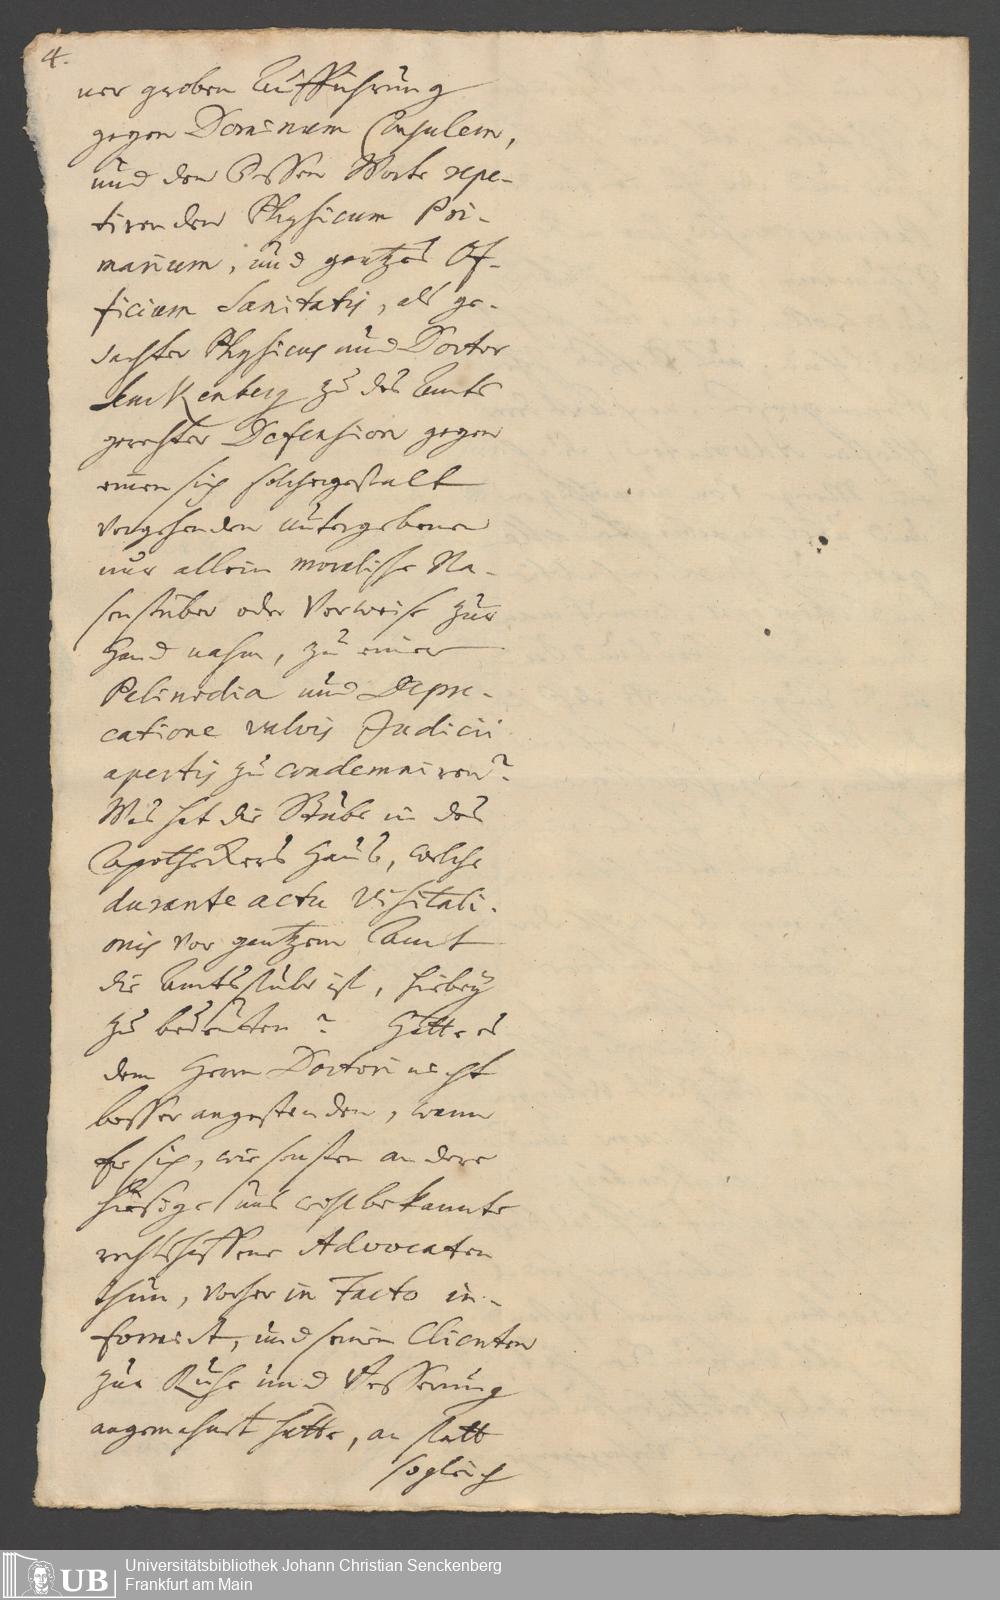 4.
ner groben Aufführung
gegen Dominum Consulem,
und den dessen Worte repe-
tirenden Physicum Pri-
marium, und gantzes Of-
ficium Sanitatis, als ge-
dachter Physicus und Doctor
Senckenberg zu des Amts
gerechter Defension gegen
einen sich solchergestalt
vergehenden Untergebenen
nur allein moralische Na-
senstüber oder Verweise zur
Hand nahm, zu einer
Palinodia und Depre-
catione valvis Judicii
apertis zu condemniren?
Was hat die Stube in des
Apotheckers Hauß, welche
durante actu visitati-
onis vor gantzem Amt
die Amtsstube ist, hiebey
zu bedeuten? Hätte es
dem Herrn Doctori nicht
besser angestanden, wann
Er sich, wie sonsten andere
hiesige uns wohlbekannte
rechtschaffene Advocaten
thun, vorher in Facto in-
formirt, und seinen Clienten
zur Ruhe und Besserung
angemahnt hätte, an statt
sogleich
UB
Universitätsbibliothek Johann Christian Senckenberg
Frankfurt am Main